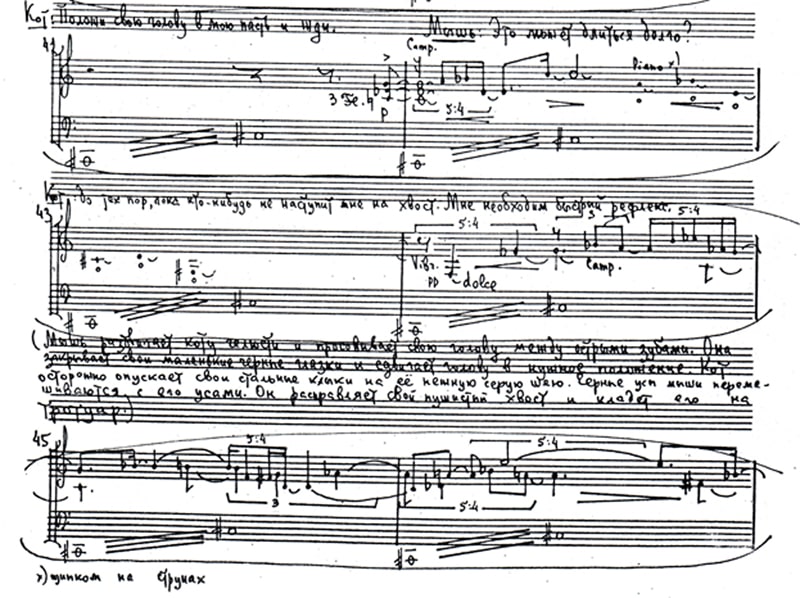 Кот: Положи свою голову в мою пасть и жди. Мышь: Это может длиться долго?
41
Camp.
Piano x)
3
p
5:4
Кот: До тех пор, пока кто-нибудь не наступит мне на хвост. Мне необходим быстрый рефлекс.
43
5:4
3
5:4
Vibr.
Camp.
pp dolce
(Мышь раздвигает коту челюсти и просовывает свою голову между острыми зубами. Она
закрывает свои маленькие чёрные глазки и сдвигает голову в нужное положение. Кот
осторожно опускает свои стальные клыки на её нежную серую шею. Черные усы мыши переме-
шиваются с его усами. Он расправляет свой пушистый хвост и кладет его на
тротуар.)
45
5:4
5:4
3
5:4
x) щипком на струнах